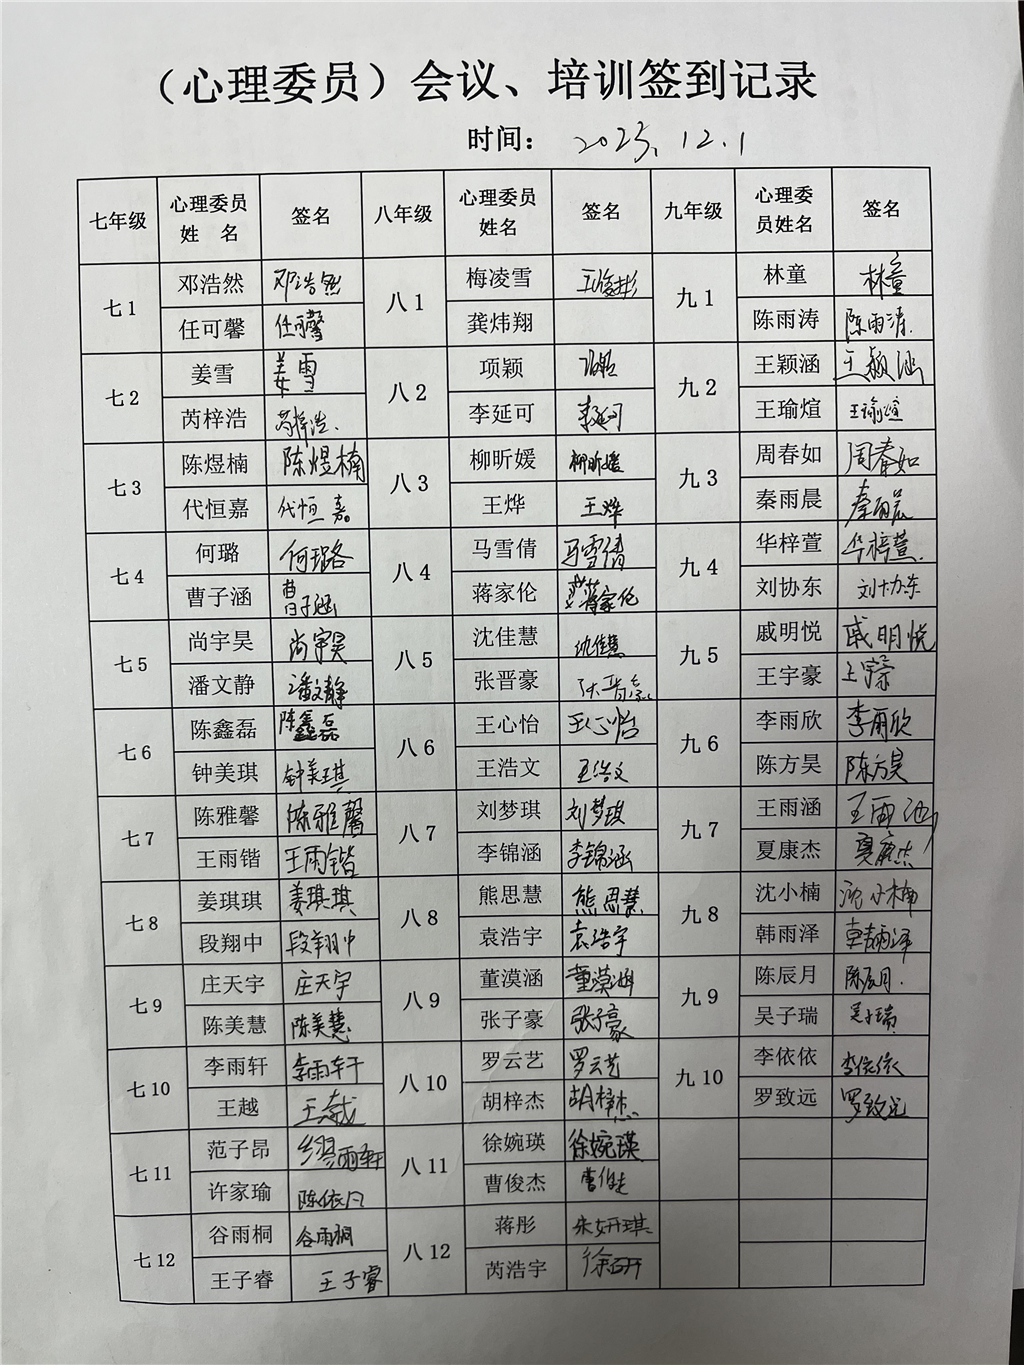 （心理委员）会议、培训签到记录
时间： 2025.12.1
七年级 心理委员姓 名 签名 八年级 心理委员姓名 签名 九年级 心理委员姓名 签名
七1 邓浩然 邓浩然 八1 梅凌雪 王俊彬 九1 林童 林童
任可馨 任可馨 龚炜翔 陈雨涛 陈雨涛
七2 姜雪 姜雪 八2 项颖 九2 王颖涵 王颖涵
芮梓浩 芮梓浩 李延可 李延可 王瑜煊 王瑜煊
七3 陈煜楠 陈煜楠 八3 柳昕媛 柳昕媛 九3 周春如 周春如
代恒嘉 代恒嘉 王烨 王烨 秦雨晨 秦雨晨
七4 何璐 何璐 八4 马雪倩 马雪倩 九4 华梓萱 华梓萱
曹子涵 曹子涵 蒋家伦 蒋家伦 刘协东 刘协东
七5 尚宇昊 尚宇昊 八5 沈佳慧 沈佳慧 九5 戚明悦 戚明悦
潘文静 潘文静 张晋豪 张晋豪 王宇豪 王宇豪
七6 陈鑫磊 陈鑫磊 八6 王心怡 王心怡 九6 李雨欣 李雨欣
钟美琪 钟美琪 王浩文 王浩文 陈方昊 陈方昊
七7 陈雅馨 陈雅馨 八7 刘梦琪 刘梦琪 九7 王雨涵 王雨涵
王雨锴 王雨锴 李锦涵 李锦涵 夏康杰 夏康杰
七8 姜琪琪 姜琪琪 八8 熊思慧 熊思慧 九8 沈小楠 沈小楠
段翔中 段翔中 袁浩宇 袁浩宇 韩雨泽 韩雨泽
七9 庄天宇 庄天宇 八9 董漠涵 董漠涵 九9 陈辰月 陈辰月
陈美慧 陈美慧 张子豪 张子豪 吴子瑞 吴子瑞
七10 李雨轩 李雨轩 八10 罗云艺 罗云艺 九10 李依依 李依依
王越 王越 胡梓杰 胡梓杰 罗致远 罗致远
七11 范子昂 缪雨轩 八11 徐婉瑛 徐婉瑛
许家瑜 陈依凡 曹俊杰 曹俊杰
七12 谷雨桐 谷雨桐 八12 蒋彤 朱妍琪
王子睿 王子睿 芮浩宇 徐研